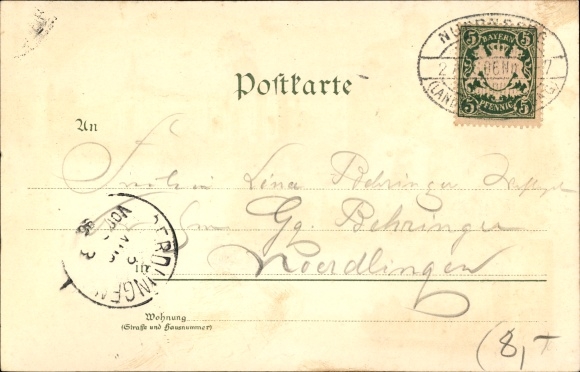 NÜRNBERG
5 BAYERN 5
5 PFENNIG 5
Postkarte
An
Fräulein Lina Behringer
Gg. Behringer
in Noerdlingen
NOERDLINGEN
Wohnung
(Straße und Hausnummer)
(8,-